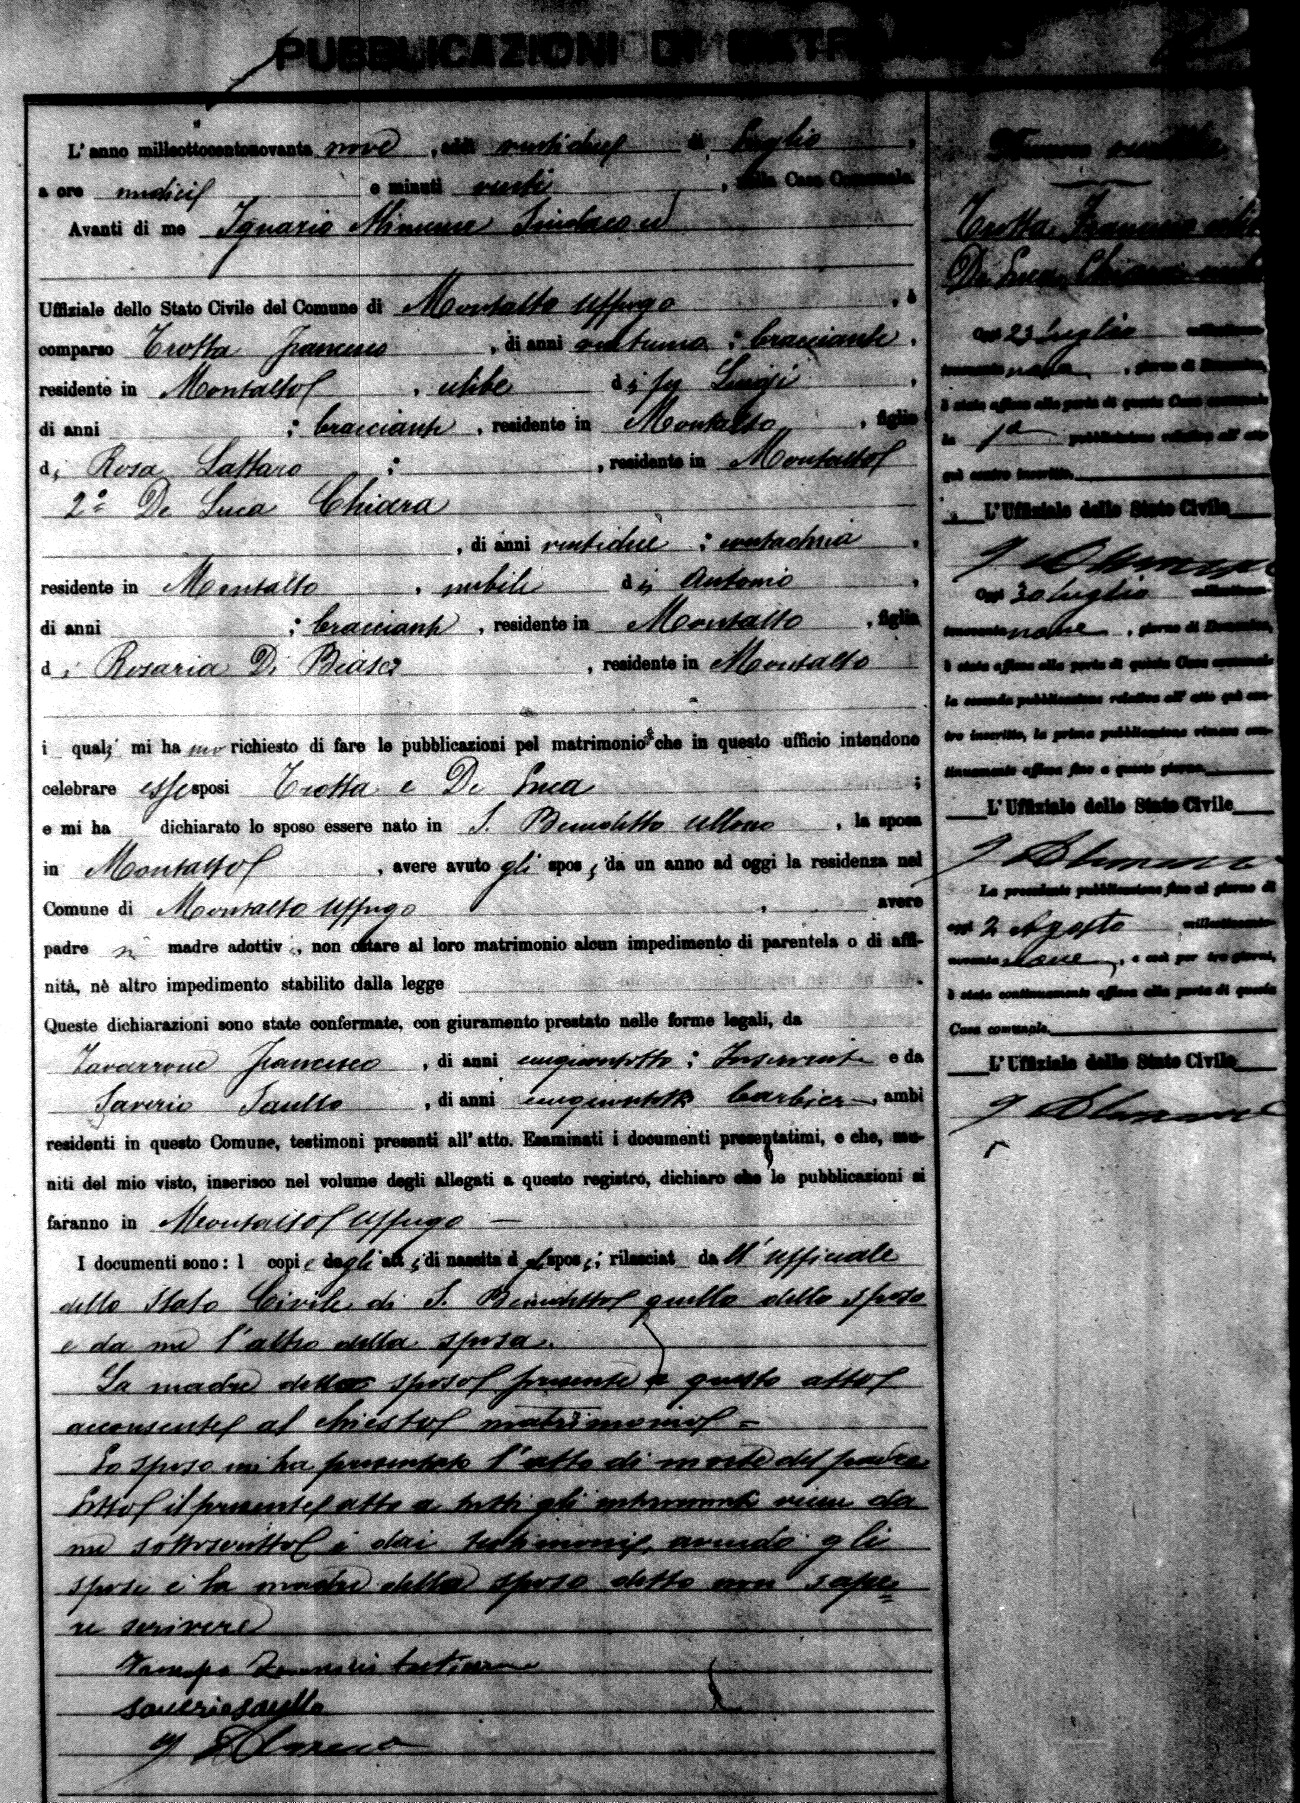 PUBBLICAZIONI DI MATRIMONIO
L'anno milleottocentonovanta nove, addì ventidue di Luglio,
a ore undici e minuti venti, nella Casa Comunale.
Avanti di me Ignazio Sindaco
Uffiziale dello Stato Civile del Comune di Montalto Uffugo, è
comparso Trotta Francesco, di anni ventuno; bracciante,
residente in Montalto, celibe di fu Luigi,
di anni ; bracciante, residente in Montalto, figlio
di Rosa Lattaro ; , residente in Montalto
2° De Luca Chiara
, di anni ventidue; contadina,
residente in Montalto, nubile di Antonio,
di anni ; bracciante, residente in Montalto, figlia
di Rosaria Di Biase, residente in Montalto
i quali mi hanno richiesto di fare le pubblicazioni pel matrimonio che in questo ufficio intendono
celebrare essi sposi Trotta e De Luca ;
e mi ha dichiarato lo sposo essere nato in S. Benedetto Ullano, la sposa
in Montalto, avere avuto gli sposi da un anno ad oggi la residenza nel
Comune di Montalto Uffugo, avere
padre nè madre adottivi, non ostare al loro matrimonio alcun impedimento di parentela o di affi-
nità, nè altro impedimento stabilito dalla legge
Queste dichiarazioni sono state confermate, con giuramento prestato nelle forme legali, da
Francesco, di anni cinquantotto; Inserviente e da
Saverio Saullo, di anni barbiere, ambi
residenti in questo Comune, testimoni presenti all'atto. Esaminati i documenti presentatimi, e che, mu-
niti del mio visto, inserisco nel volume degli allegati a questo registro, dichiaro che le pubblicazioni si
faranno in Montalto Uffugo —
I documenti sono: 1 copie degli atti di nascita degli sposi; rilasciat da ll'ufficiale
dello Stato Civile di S. Benedetto quello dello sposo
e da me l'altro della sposa.
La madre dello sposo presente a questo atto
acconsente al chiesto matrimonio =
Lo sposo mi ha presentato l'atto di morte del padre
Letto il presente atto a tutti gli intervenuti viene da
me sottoscritto e dai testimoni, avendo gli
sposi e la madre dello sposo detto non sape=
re scrivere
Saverio Saullo
Numero ventidue
Trotta Francesco celibe
De Luca Chiara nubile
Oggi 23 Luglio milleottocento-
novanta nove, giorno di Domenica,
è stata affissa alla porta di questa Casa comunale
la 1ª pubblicazione relativa all'atto
quì contro inscritto.
L'Uffiziale dello Stato Civile
Oggi 30 Luglio milleottocento-
novanta nove, giorno di Domenica,
è stata affissa alla porta di questa Casa comunale
la seconda pubblicazione relativa all'atto quì con-
tro inscritto, la prima pubblicazione rimase con-
tinuamente affissa fino a questo giorno.
L'Uffiziale dello Stato Civile
La precedente pubblicazione fino al giorno di
oggi 2 Agosto milleottocento-
novanta nove, e così per tre giorni,
è stata continuamente affissa alla porta di questa
Casa comunale.
L'Uffiziale dello Stato Civile